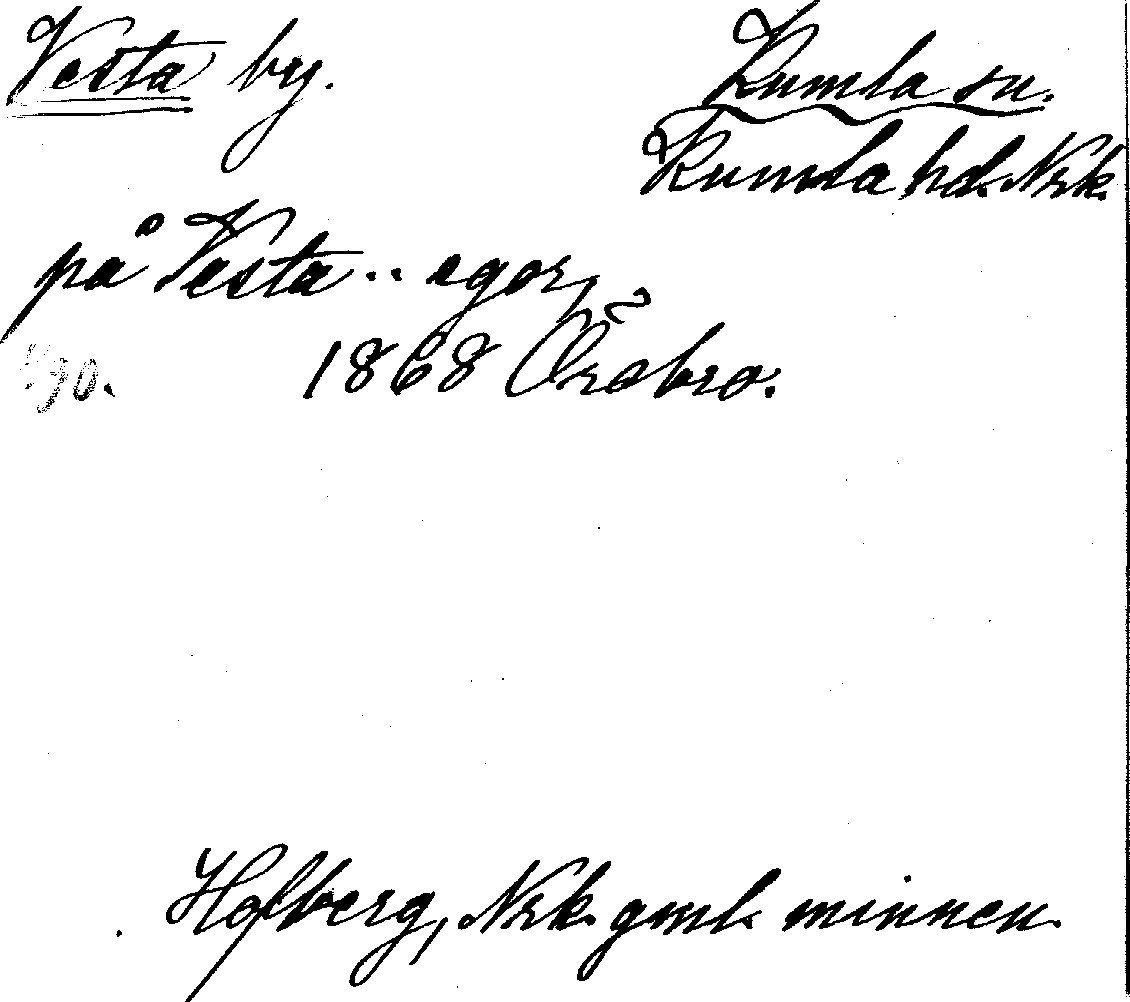 Vesta by.
Kumla sn.
Kumla hd. Nrk.
på Vesta .. egor,
1868 Örebro.
Hofberg, Nrk. gml. minnen.